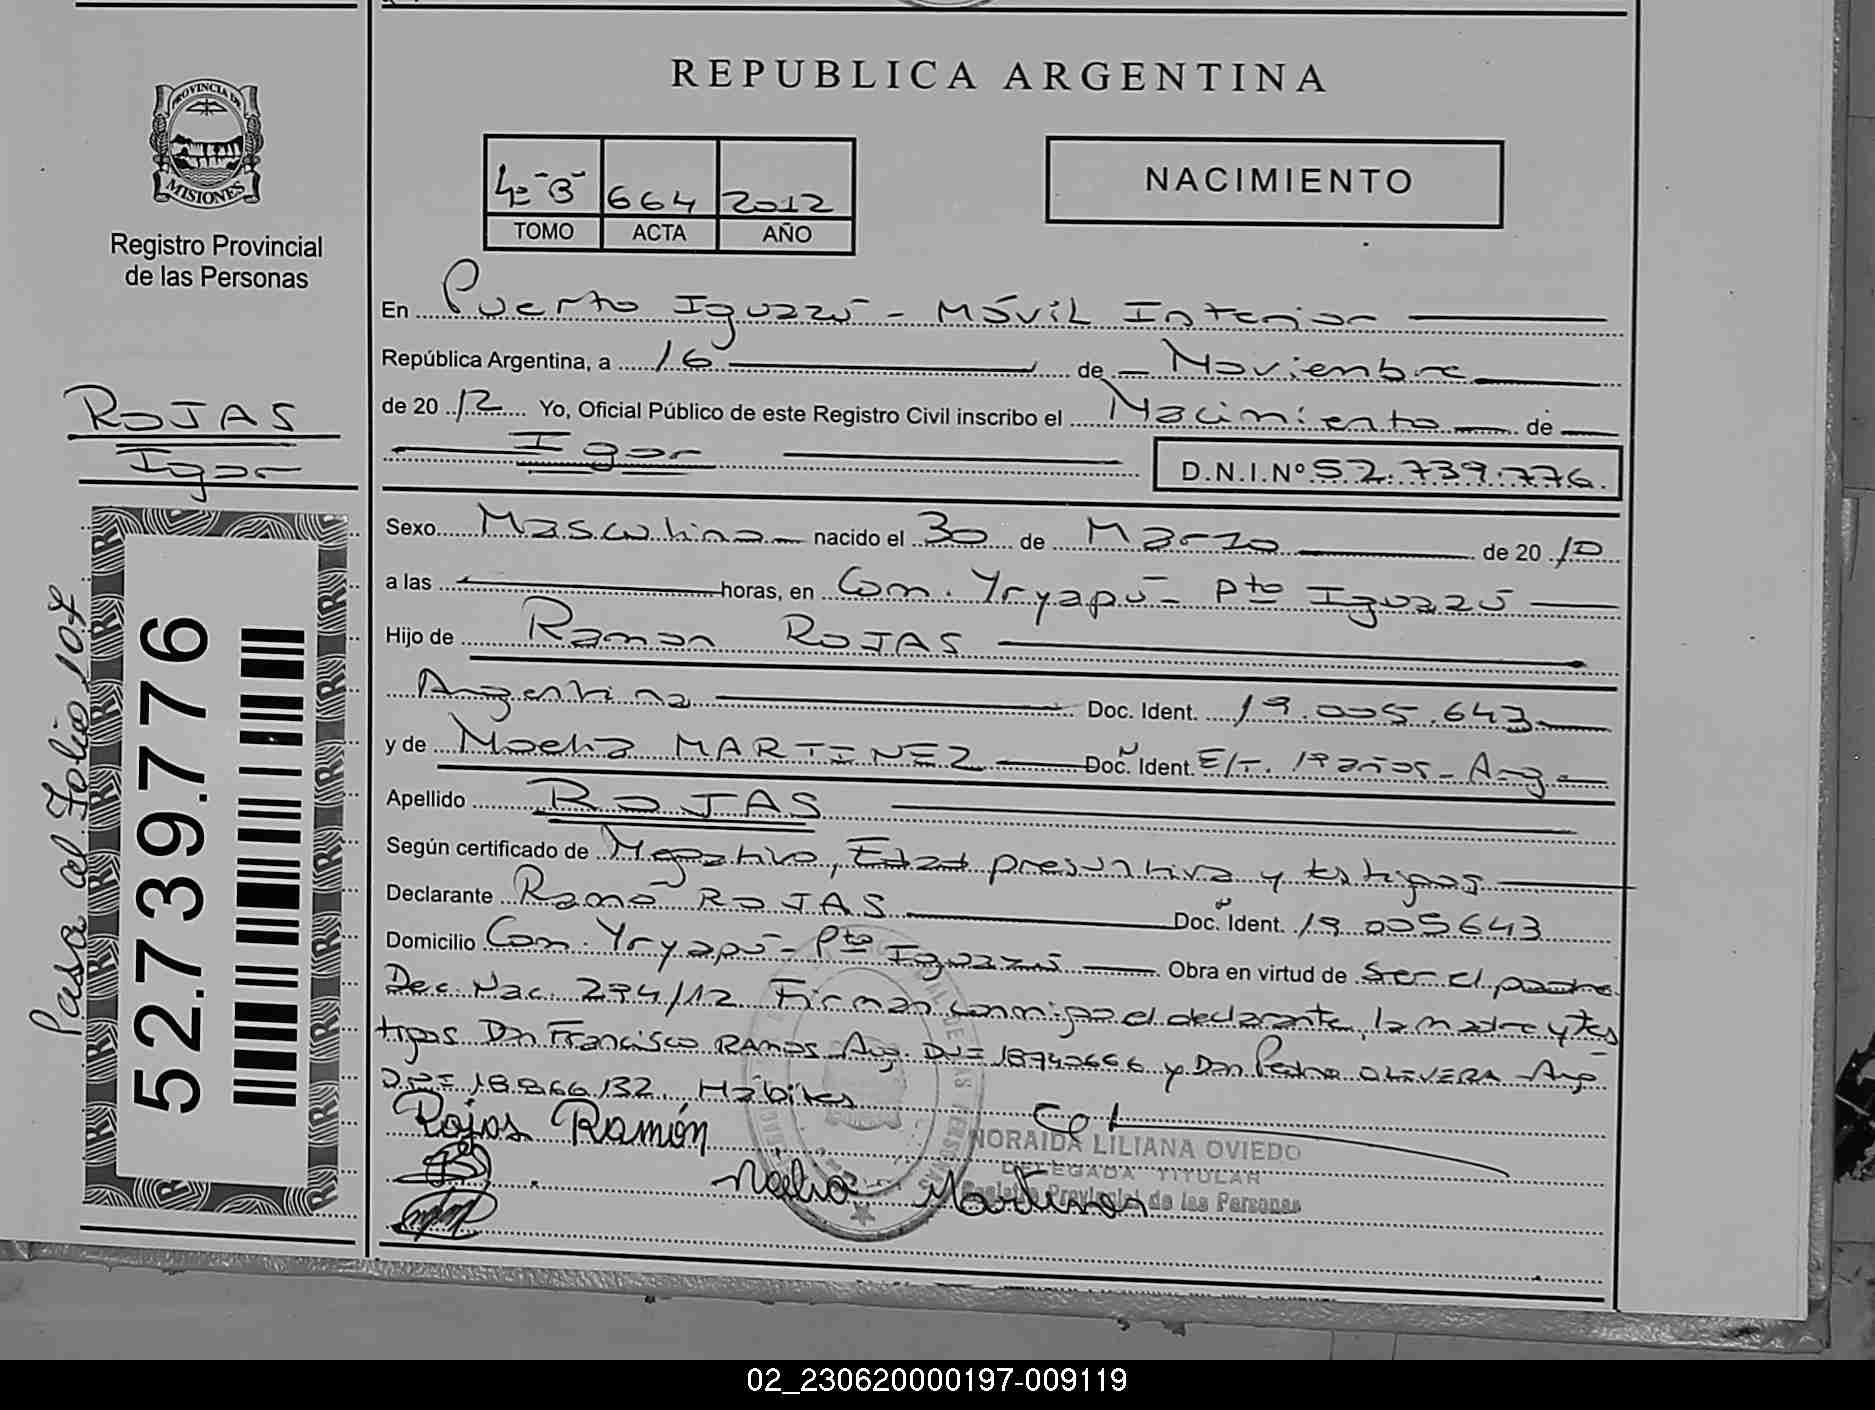 REPUBLICA ARGENTINA
PROVINCIA DE
MISIONES
Registro Provincial
de las Personas
4º "B" 664 2012
TOMO ACTA AÑO
NACIMIENTO
En Puerto Iguazú - Móvil Interior
República Argentina, a 16 de Noviembre
de 2012 Yo, Oficial Público de este Registro Civil inscribo el Nacimiento de
Igor
D.N.I.Nº 52.739.776.
ROJAS
Igor
Sexo Masculino nacido el 30 de Marzo de 2010
a las horas, en Com. Yryapú - Pto Iguazú
Hijo de Ramon ROJAS
Argentina Doc. Ident. 19.005.643
y de MARTINEZ Doc. Ident. 19 años - Arg
Apellido ROJAS
Según certificado de Negativo, Edad presuntiva y testigos
Declarante Ramó ROJAS Doc. Ident. 19.005643
Domicilio Com. Yryapú - Pto Iguazú Obra en virtud de Ser el padre
Dec. Nac. 294/12 Firman conmigo el declarante, la madre y tes
tigos Don Francisco RAMOS Arg. DNI 18740666 y Don Pedro OLIVERA Arg
DNI 18.866.132. Hábiles
Rojas Ramón
NORAIDA LILIANA OVIEDO
DELEGADA TITULAR
Registro Provincial de las Personas
Martines
Pasa al Folio 104
52.739.776
02_230620000197-009119